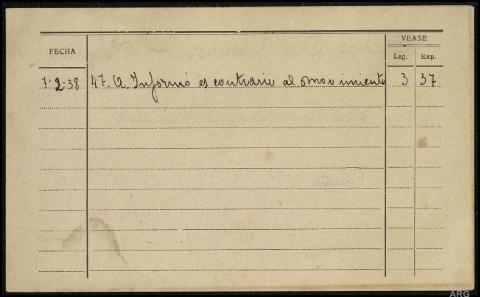 VEASE
FECHA
Leg. Exp.
7-2-38 47. A. Informó es contrario al movimiento 3 37
ARG